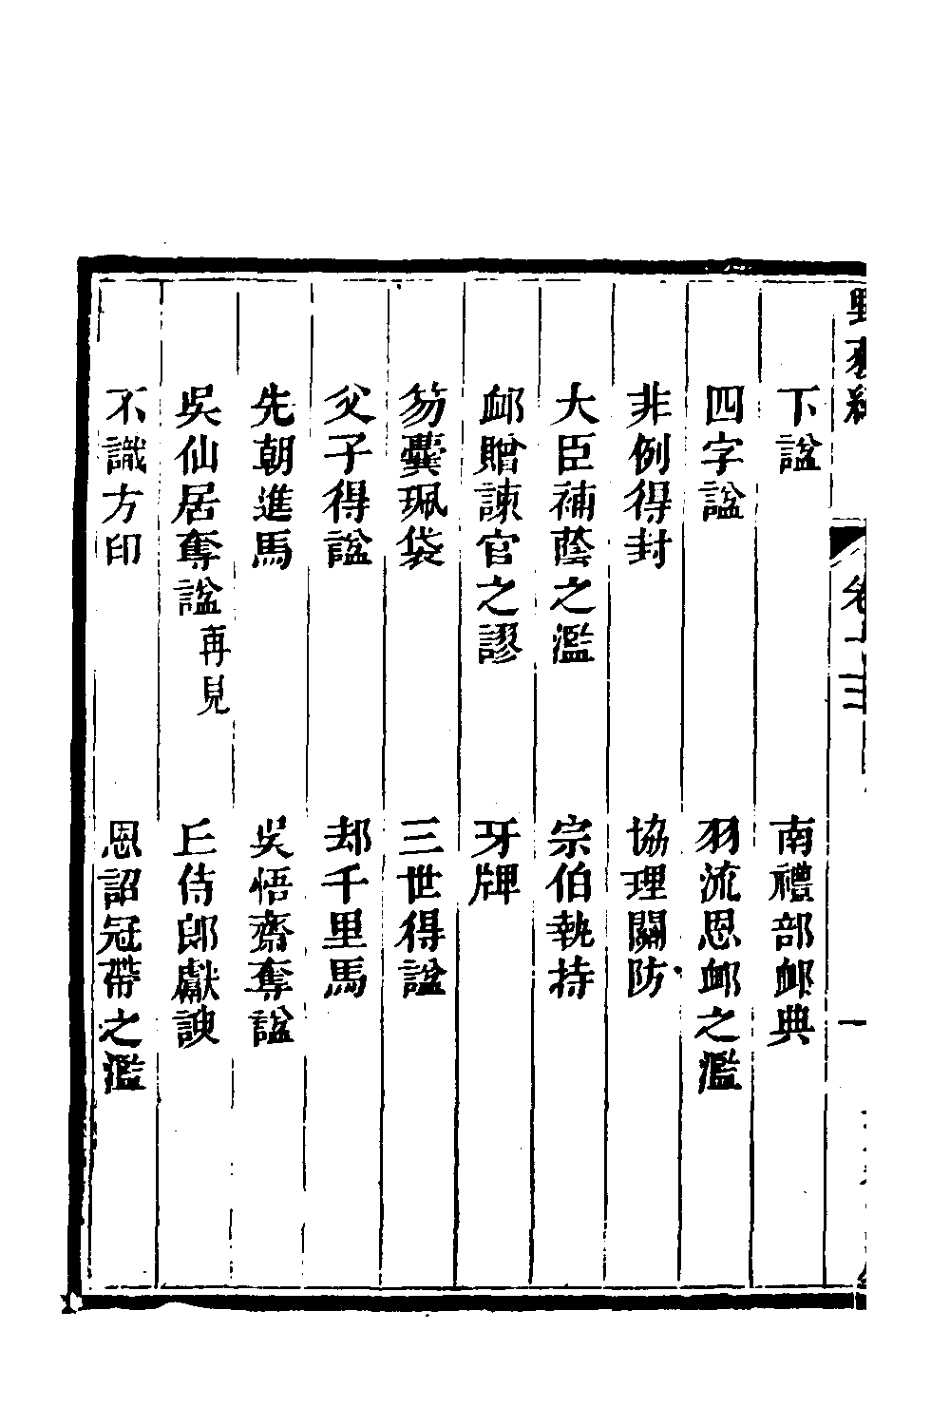 野獲編 卷十三 一
下諡 南禮部卹典
四字諡 羽流恩卹之濫
非例得封 協理關防
大臣補蔭之濫 宗伯執持
卹贈諫官之謬 牙牌
笏囊珮袋 三世得諡
父子得諡 却千里馬
先朝進馬 吳悟齋奪諡
吳仙居奪諡再見 丘侍郎獻諛
不識方印 恩詔冠帶之濫